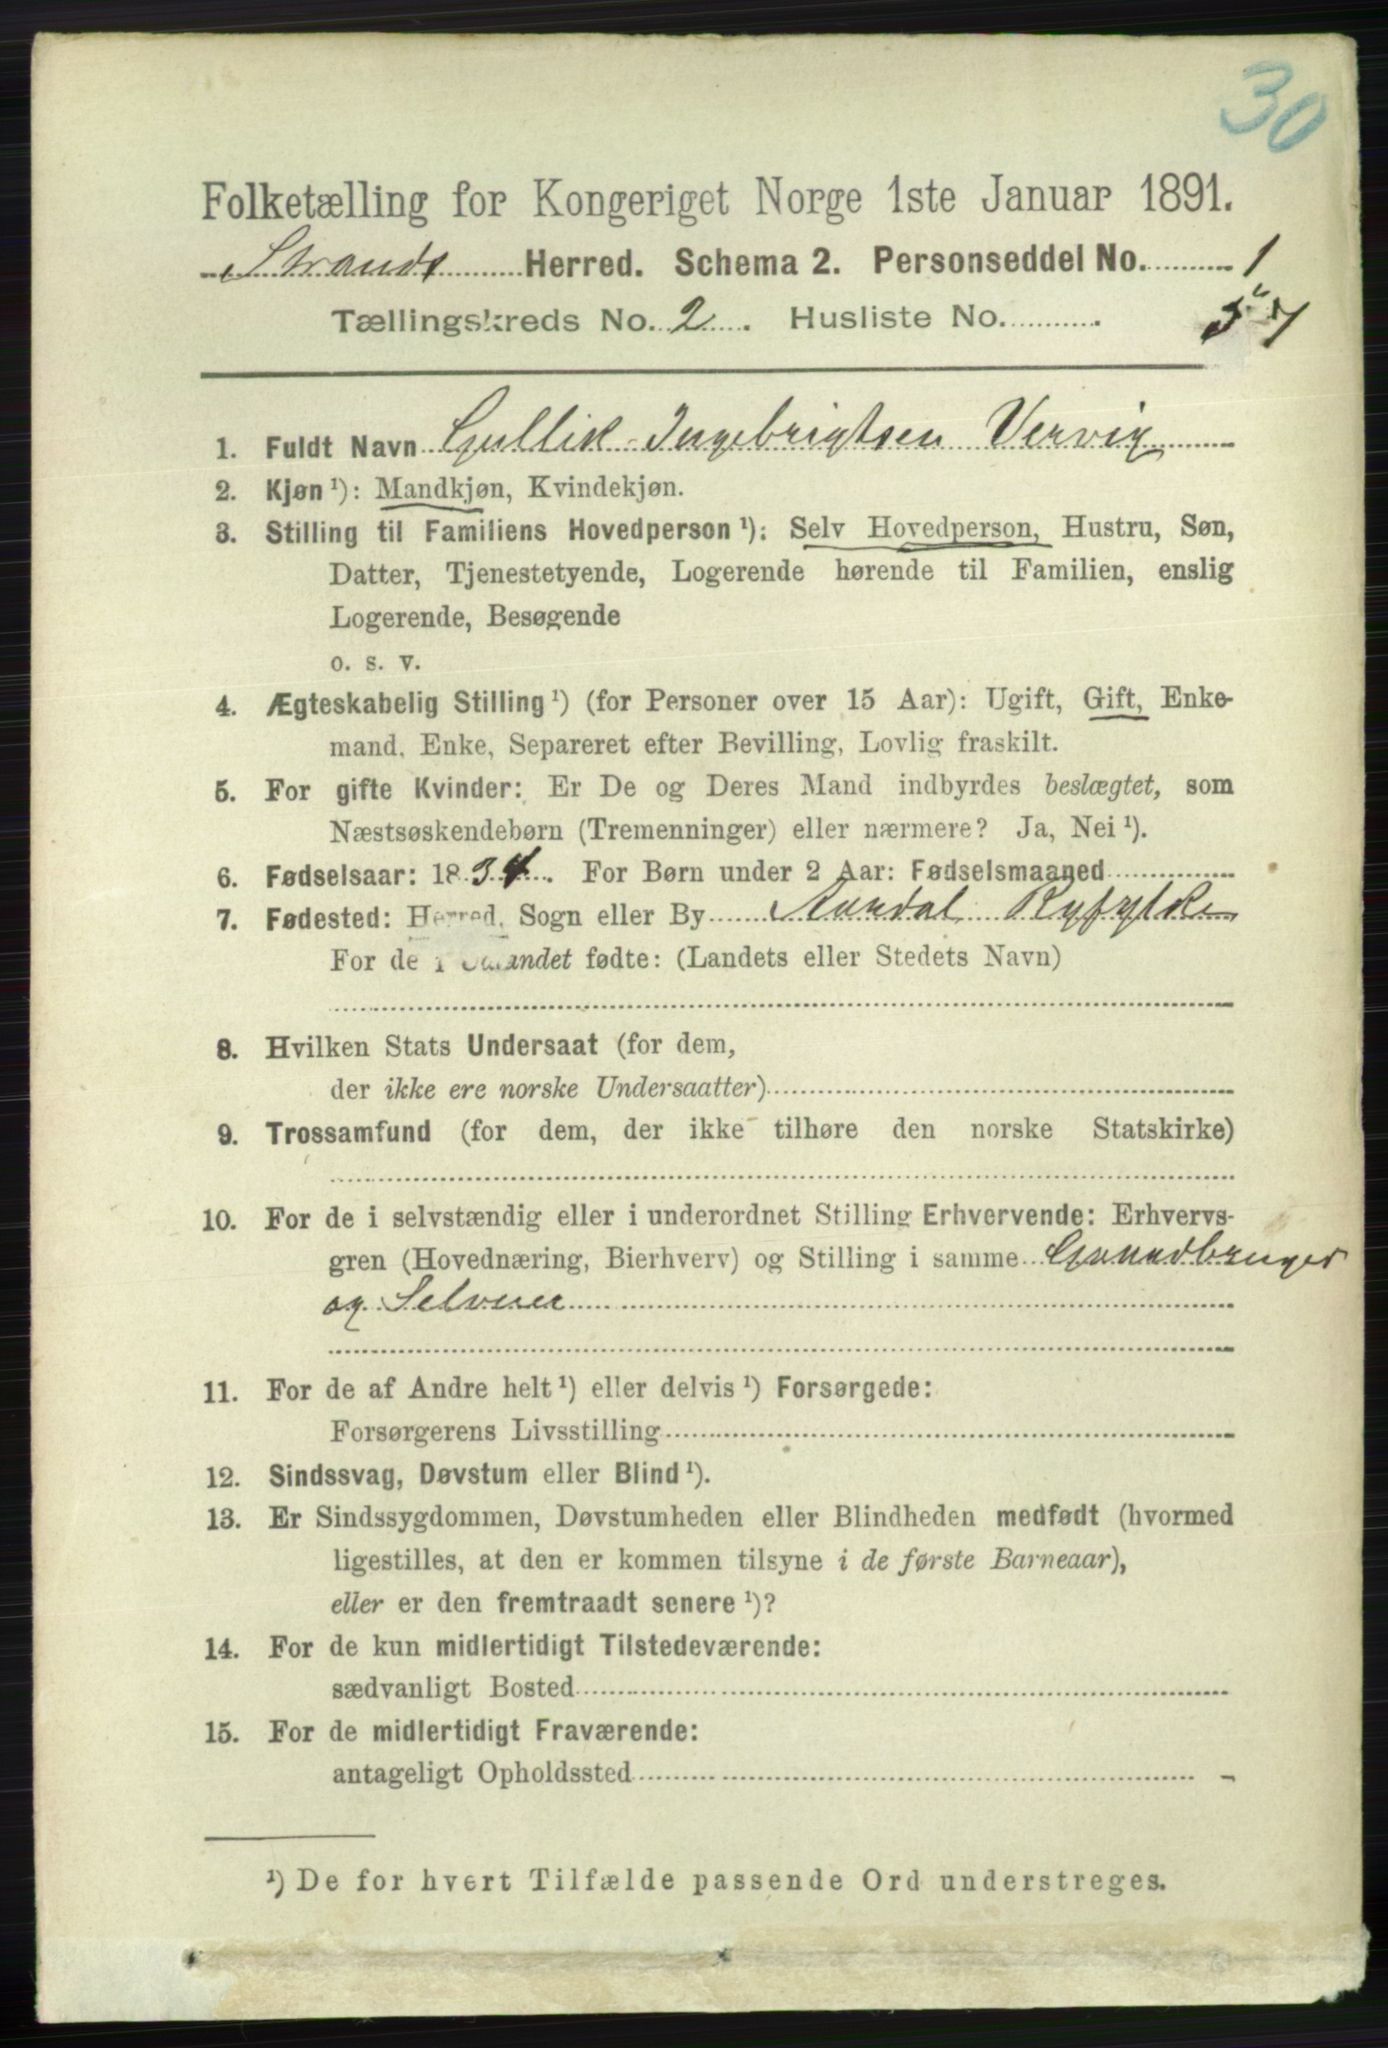 30
Folketælling for Kongeriget Norge 1ste Januar 1891.
Strands Herred. Schema 2. Personseddel No. 1
Tællingskreds No. 2. Husliste No.
1. Fuldt Navn Gullik Ingebrigtsen Vervig
2. Kjøn ¹): Mandkjøn, Kvindekjøn.
3. Stilling til Familiens Hovedperson ¹): Selv Hovedperson, Hustru, Søn,
Datter, Tjenestetyende, Logerende hørende til Familien, enslig
Logerende, Besøgende
o. s. v.
4. Ægteskabelig Stilling ¹) (for Personer over 15 Aar): Ugift, Gift, Enke-
mand, Enke, Separeret efter Bevilling, Lovlig fraskilt.
5. For gifte Kvinder: Er De og Deres Mand indbyrdes beslægtet, som
Næstsøskendebørn (Tremenninger) eller nærmere? Ja, Nei ¹).
6. Fødselsaar: 1834. For Børn under 2 Aar: Fødselsmaaned
7. Fødested: Herred, Sogn eller By Aardal Ryfylke
For de i Udlandet fødte: (Landets eller Stedets Navn)
8. Hvilken Stats Undersaat (for dem,
der ikke ere norske Undersaatter)
9. Trossamfund (for dem, der ikke tilhøre den norske Statskirke)
10. For de i selvstændig eller i underordnet Stilling Erhvervende: Erhvervs-
gren (Hovednæring, Bierhverv) og Stilling i samme Gaardbruger
og Selveier
11. For de af Andre helt ¹) eller delvis ¹) Forsørgede:
Forsørgerens Livsstilling
12. Sindssvag, Døvstum eller Blind ¹).
13. Er Sindssygdommen, Døvstumheden eller Blindheden medfødt (hvormed
ligestilles, at den er kommen tilsyne i de første Barneaar),
eller er den fremtraadt senere ¹)?
14. For de kun midlertidigt Tilstedeværende:
sædvanligt Bosted
15. For de midlertidigt Fraværende:
antageligt Opholdssted
¹) De for hvert Tilfælde passende Ord understreges.